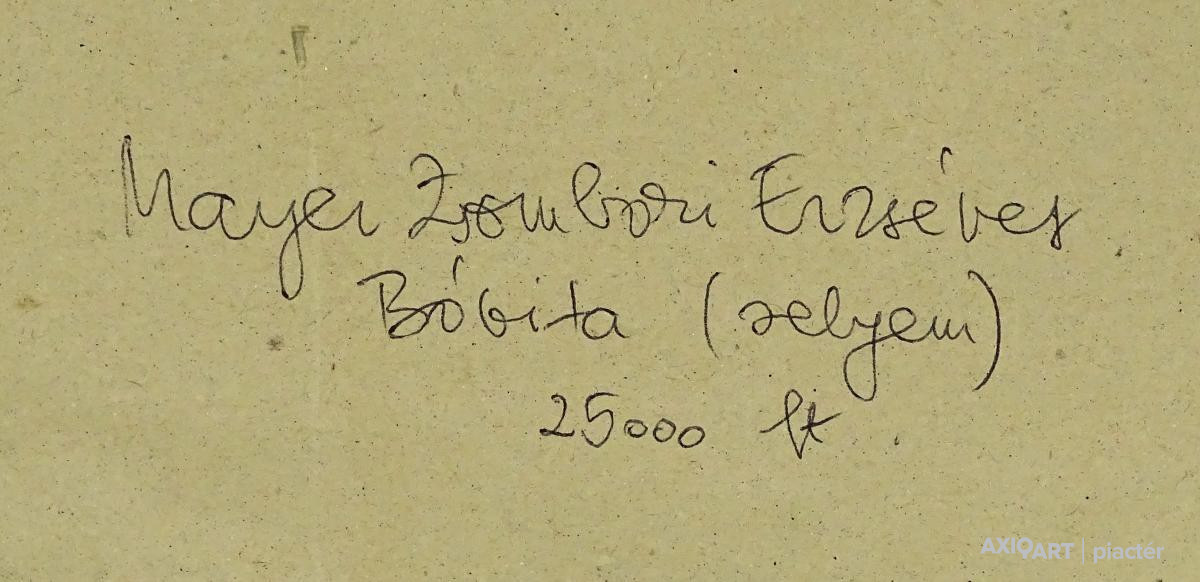 Mayer Zsombori Erzsébet
Bóbita (selyem)
25000 ft
AXIOART | piactér